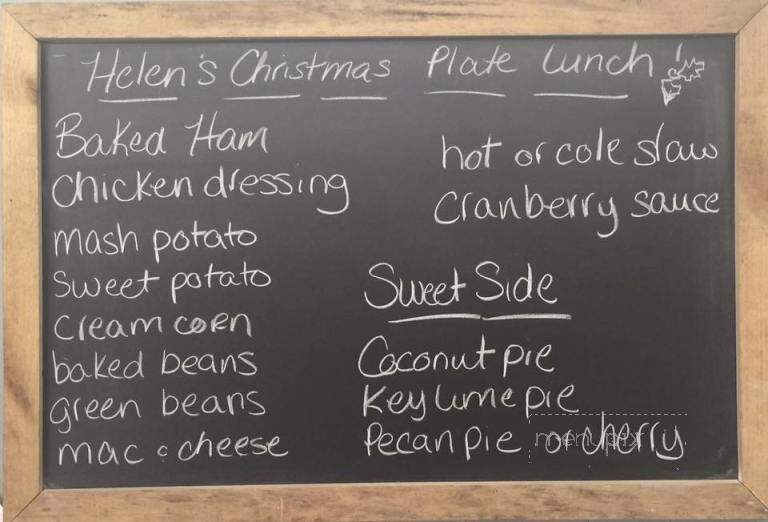 Helen's Christmas Plate Lunch!
Baked Ham
Chicken dressing
mash potato
Sweet potato
Cream corn
baked beans
green beans
mac & cheese
hot or cole slaw
Cranberry sauce
Sweet Side
Coconut pie
Key Lime pie
Pecan pie or cherry
menupix